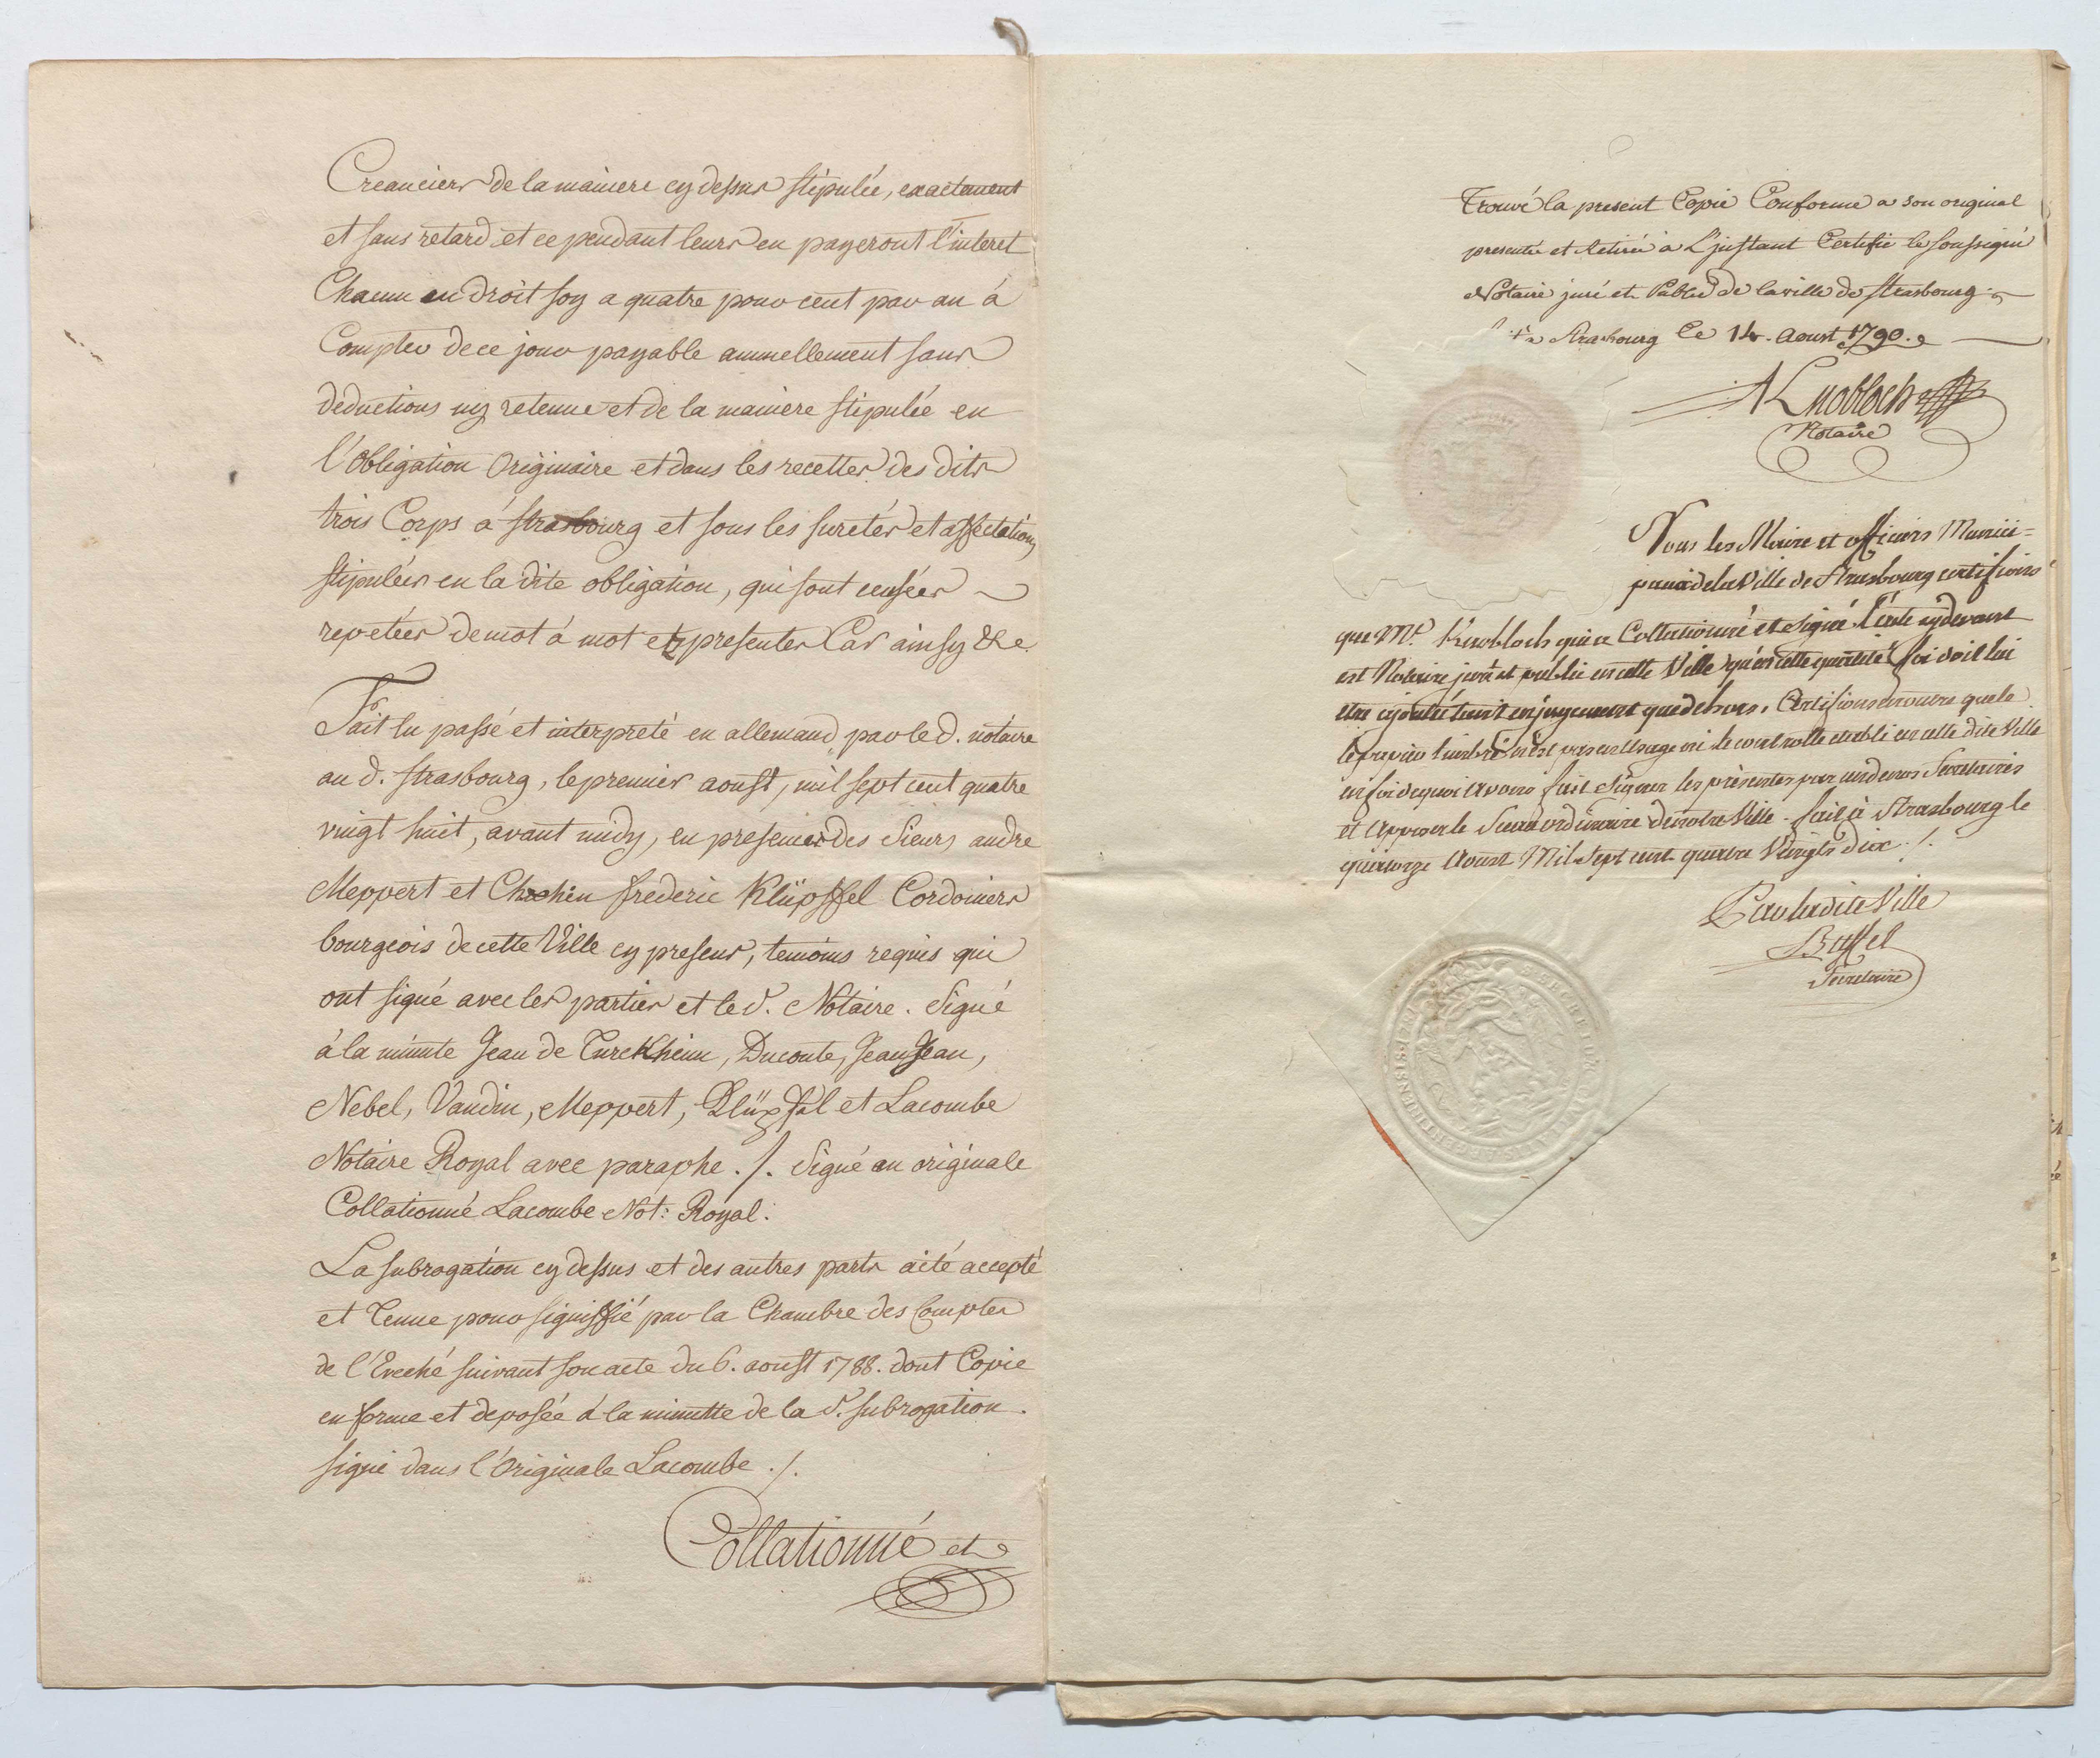 Creanciers de la maniere cy dessus stipulée, exactement
et sans retard et cependant leurs en payeront l'interet
Chacun en droit soy a quatre pour cent par an á
Compter de ce jour payable annuellement sans
deductions ny retenue et de la maniere stipulée en
l'Obligation Originaire et dans les recettes des dits
trois Corps á Strasbourg et sous les suretés et affectations
stipulées en la dite obligation, qui sont censées
repetées de mot á mot et presentes Car ainsy &c.
Fait lu passé et interpreté en allemand par le d. notaire
au d. Strasbourg, le premier aoust, mil sept cent quatre
vingt huit, avant midy, en presence des Sieurs andre
Meppert et frederic Klüpffel Cordoniers
bourgeois de cette Ville cy presens, temoins requis qui
ont signé avec les parties et le d. Notaire. Signé
á la minute Jean de Turckheim, Ducoute, Jeanjean,
Nebel, Vaudin, Meppert, Klüpffel et Lacombe
Notaire Royal avec paraphe ./. Signé en originale
Collationné Lacombe Not: Royal.
La subrogation cy dessus et des autres parts a été accepté
et Tenue pour signiffié par la Chambre des Comptes
de l'Eveché suivant son acte du 6. aoust 1788. dont Copie
en forme et deposée á la minutte de la d. subrogation.
signé dans l'Originale Lacombe ./.
Collationné
Trouvé la present Copie Conforme a son original
presenté et Retiré à L'jnstant Certifie le Soussigné
Notaire juré et Public de la ville de Strasbourg
Strasbourg Ce 14. Aoust 1790.
Knobloch
Notaire
Nous les Maire et officiers Munici=
paux de la Ville de Strasbourg certifions
que Mr. Knobloch qui a Collationné et signé l'acte cydevant
est Notaire juré et public en cette Ville qu'en cette qualité foi doit lui
etre ajoutée tant en jugement que dehors. Certifions encore que le
papier timbré n'est pas en Usage ni le controlle etabli en cette dite Ville
en foi de quoi avons fait signer les présentes par un de nos Secretaires
et apposer le Sceau ordinaire de notre Ville. fait à Strasbourg le
quatorze Aoust Mil Sept cent quatre Vingts dix ./.
Par ladite Ville
Secretaire